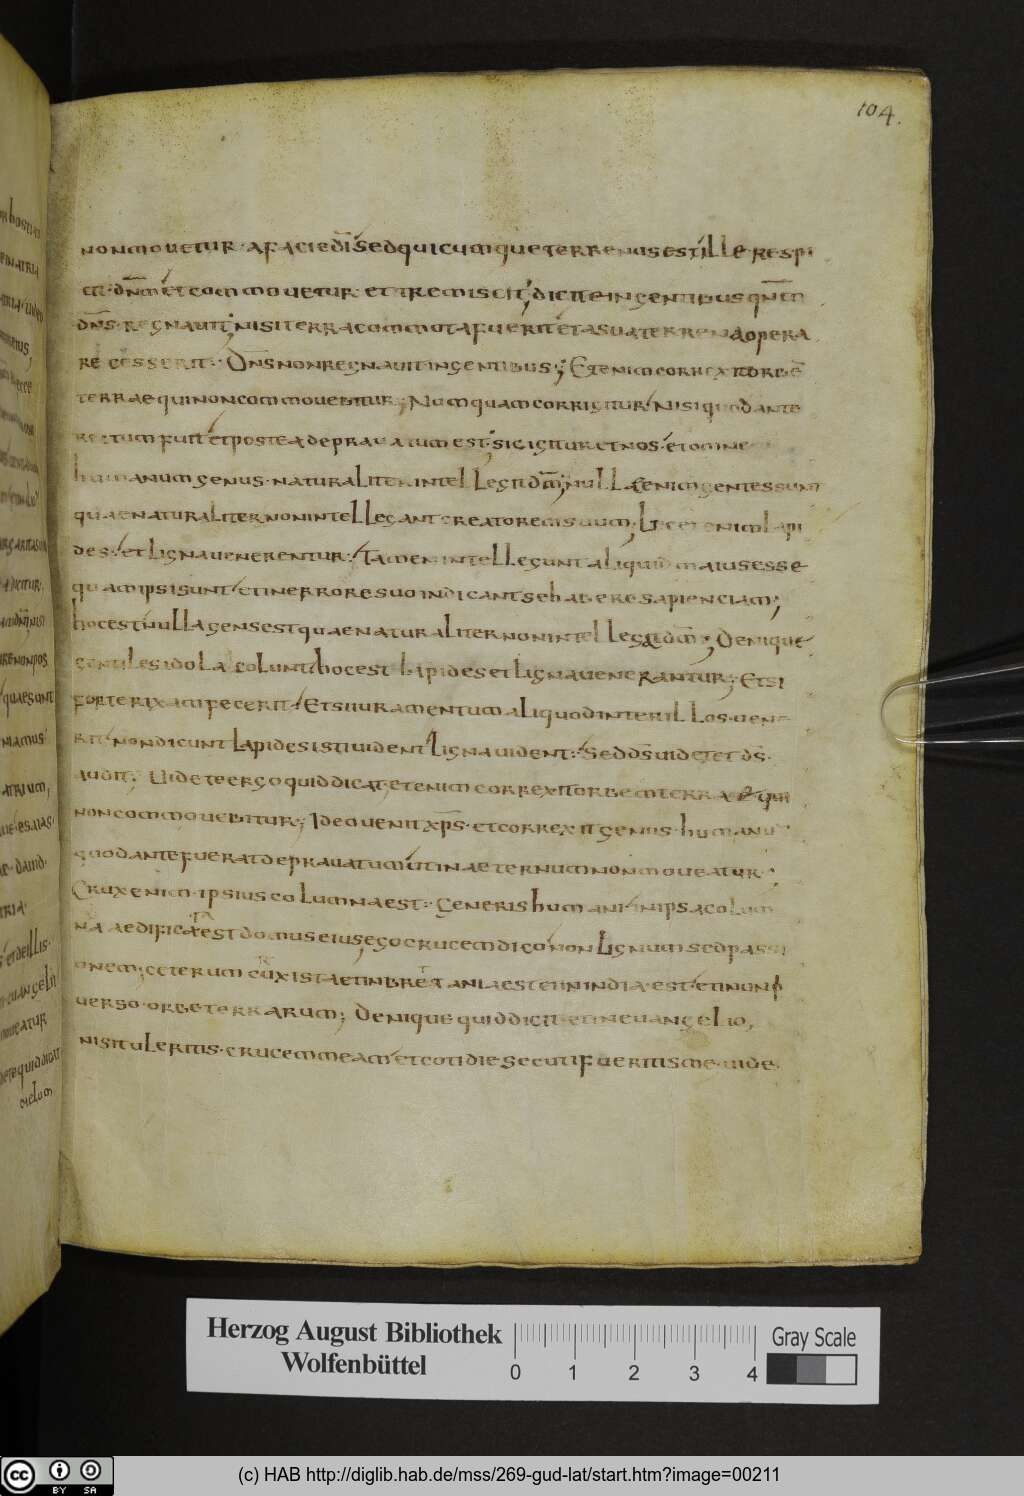 104.
non mouetur · a facie dī sed quicumque terrenus est ille respi
cit · dn̄m et commouetur et tremiscit; dicite in gentibus qn̄m
dn̄s · regnauit; nisi terra commota fuerit et a sua terrena opera
recesserit · Dn̄s non regnauit in gentibus; Etenim correxit orbē
terrae qui non commouebitur; Numquam corrigitur nisi quod ante
rectum fuit et postea deprauatum est; sic igitur et nos · et omne
humanum genus · naturaliter intellegit dm̄; nullae enim gentes sunt
quae naturaliter non intellegant creatorem suum; Licet enim lapi
des · et ligna uenerentur · tamen intellegunt aliquid maius esse
quam ipsi sunt et in errore suo indicant se habere sapienciam;
hoc est nulla gens est quae naturaliter non intellegit dm̄; Denique
gentiles idola colunt hoc est lapides et ligna uenerantur; Et si
forte rixam fecerit · Et si iuramentum aliquod inter illos uen
rit non dicunt lapides isti uident ligna uident · Sed ds̄ uidet et ds̄
audit. Uidete ergo quid dicat etenim correxit orbem terrae qui
non commouebitur; Ideo uenit xp̄s · et correxit genus · humanū
quod ante fuerat deprauatum ut in aeternum non moueatur ·
Crux enim · ipsius columna est · generis humani · in ipsa colum
na aedificata est domus eius; ego crucem dico non lignum sed passi
onem; ceterum crux ista et in bretania est et in india est · et in uni
uerso · orbe terrarum; Denique quid dicit et in euangelio,
nisi tuleritis · crucem meam et cotidie secuti fueritis me · uide
Herzog August Bibliothek
Wolfenbüttel
0 1 2 3 4
Gray Scale
cc BY SA
(c) HAB http://diglib.hab.de/mss/269-gud-lat/start.htm?image=00211